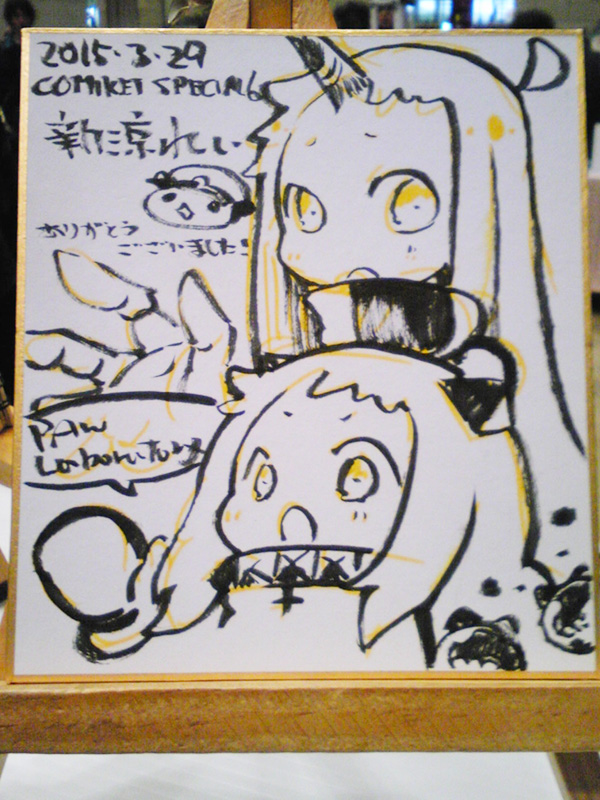 2015.3.29
COMIKET SPECIAL6
新涼れい
ありがとう
ございました!
PAW
Laboratory